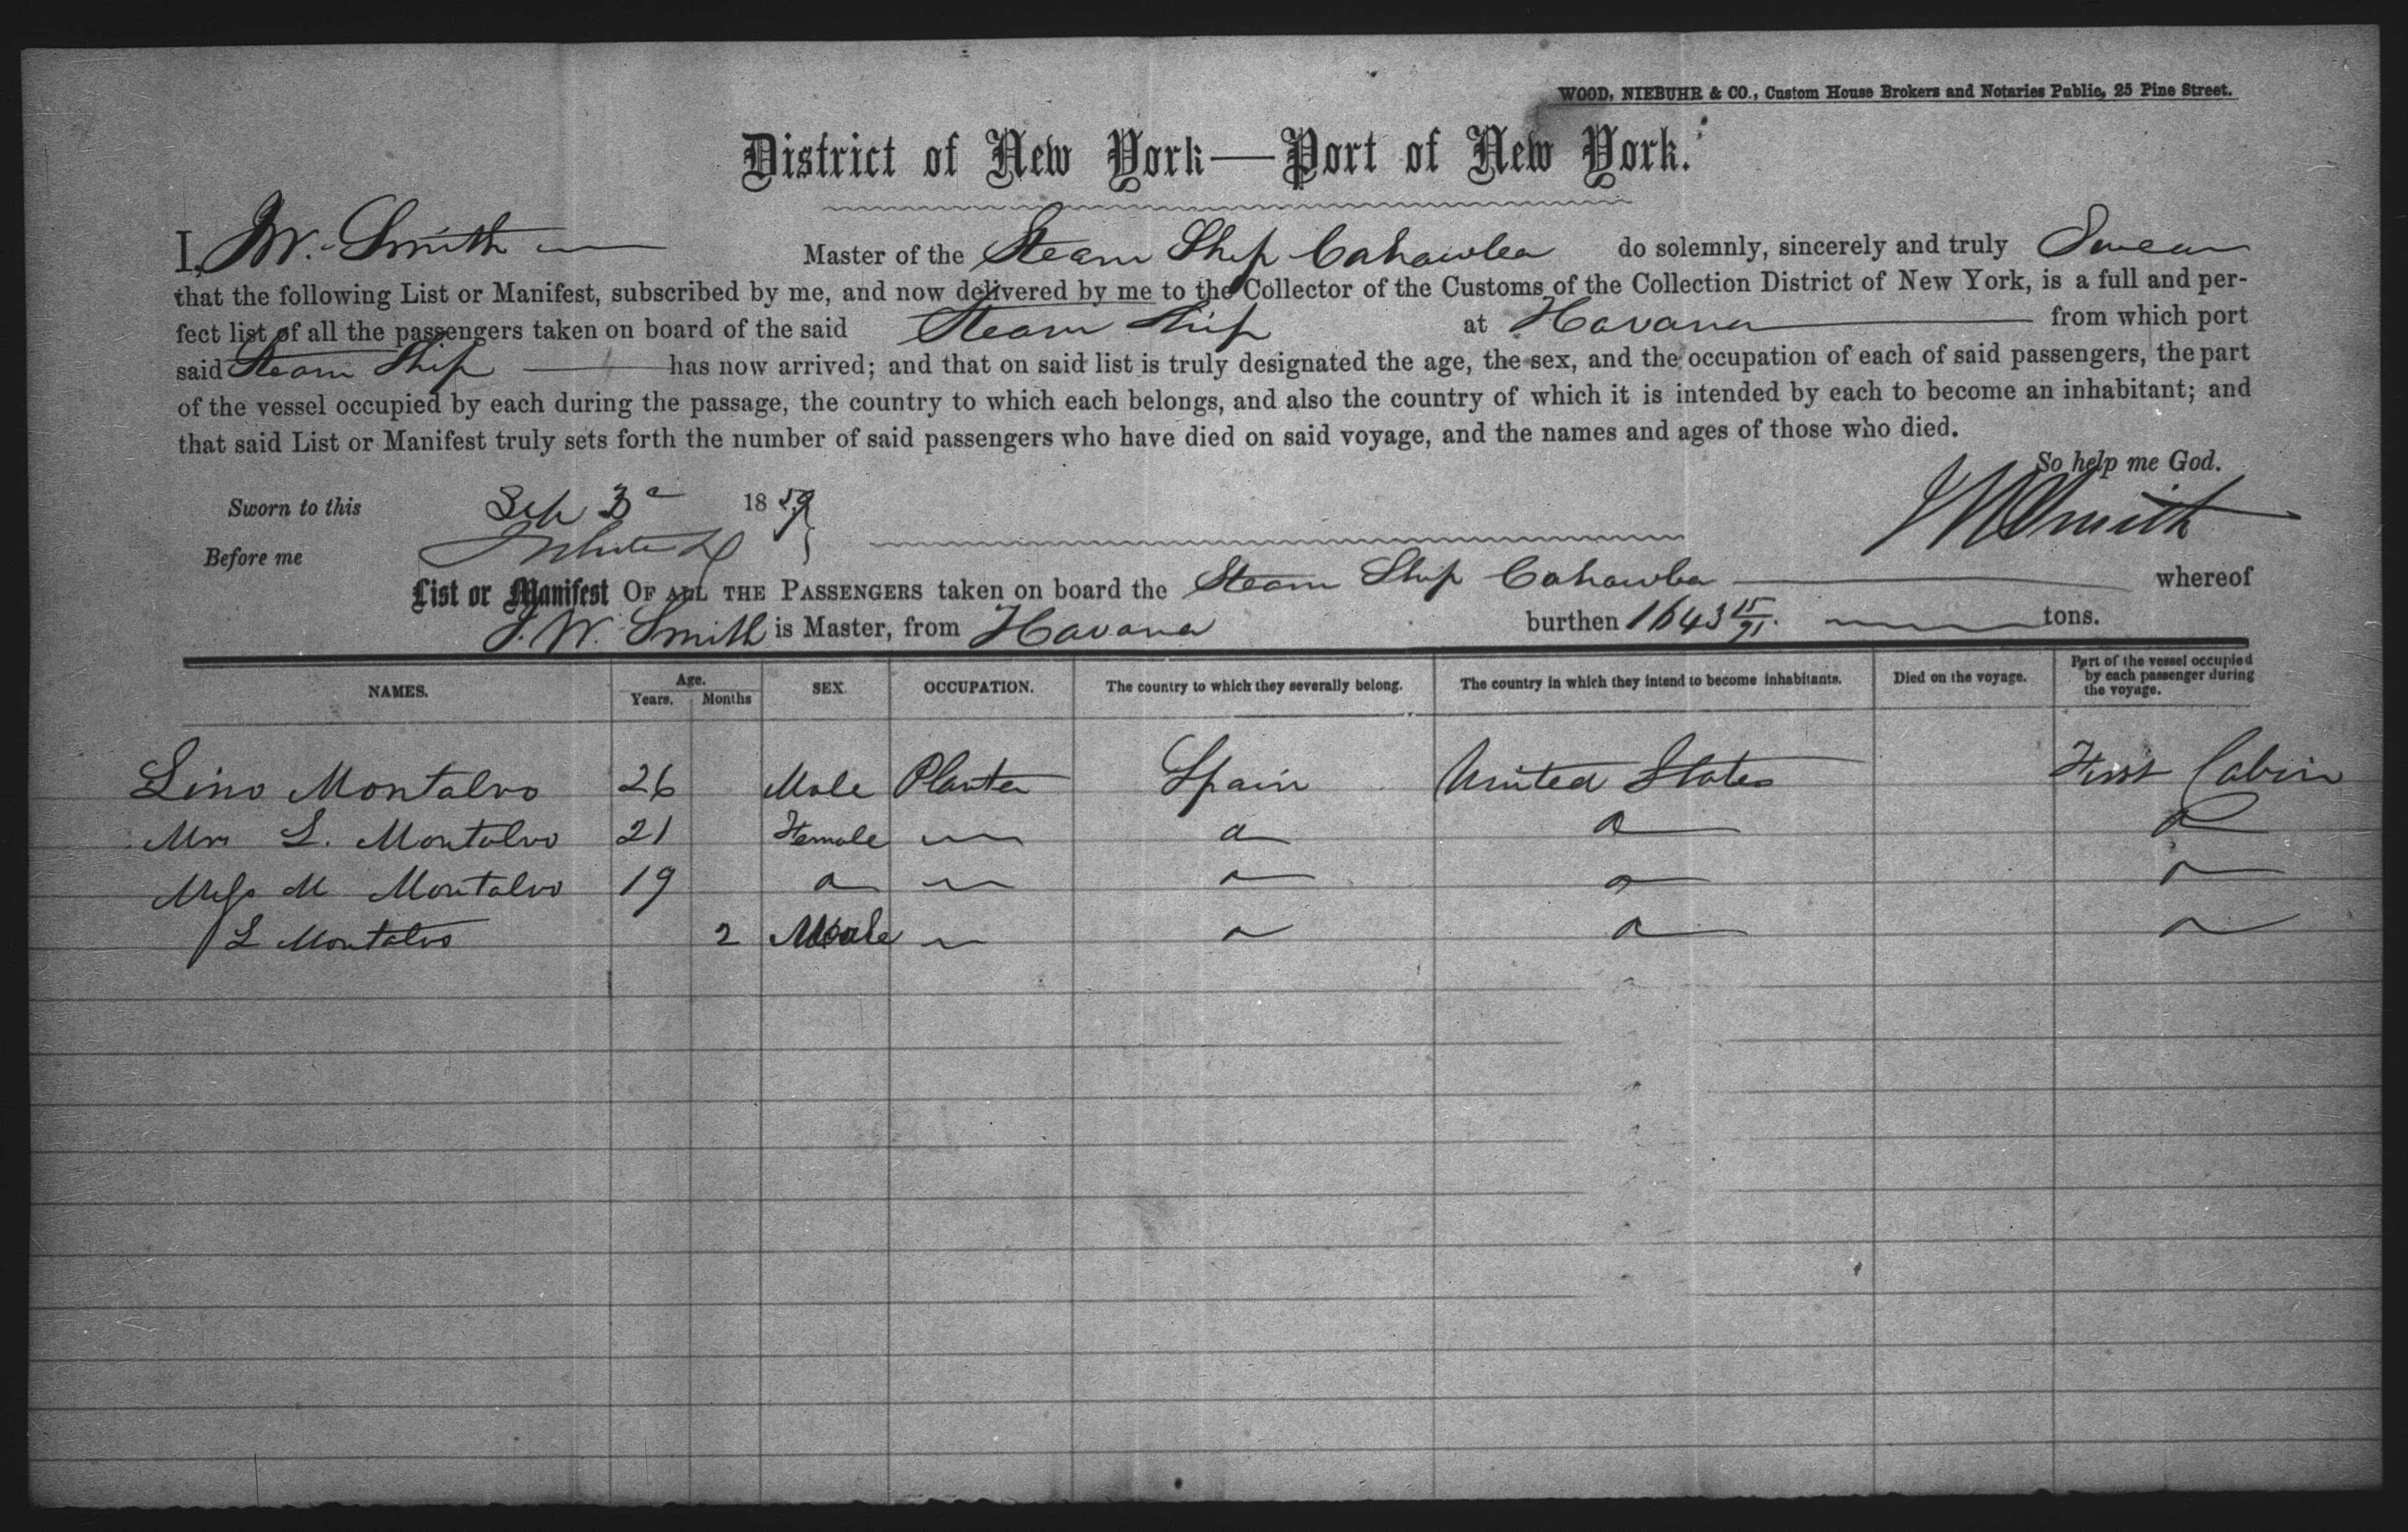 WOOD, NIEBUHR & CO., Custom House Brokers and Notaries Public, 25 Pine Street.
District of New York—Port of New York.
I, J.W. Smith — Master of the Steam Ship Cahawba do solemnly, sincerely and truly Swear
that the following List or Manifest, subscribed by me, and now delivered by me to the Collector of the Customs of the Collection District of New York, is a full and per-
fect list of all the passengers taken on board of the said Steam Ship at Havana — from which port
said Steam Ship — has now arrived; and that on said list is truly designated the age, the sex, and the occupation of each of said passengers, the part
of the vessel occupied by each during the passage, the country to which each belongs, and also the country of which it is intended by each to become an inhabitant; and
that said List or Manifest truly sets forth the number of said passengers who have died on said voyage, and the names and ages of those who died.
So help me God.
Sworn to this Sep 3d 1859 JW Smith
Before me
List or Manifest OF ALL THE PASSENGERS taken on board the Steam Ship Cahawba — whereof
J. W. Smith is Master, from Havana burthen 1643 15/91 — tons.
NAMES. Age. Years. Months SEX. OCCUPATION. The country to which they severally belong. The country in which they intend to become inhabitants. Died on the voyage. Part of the vessel occupied by each passenger during the voyage.
Lino Montalvo 26 Male Planter Spain United States First Cabin
Mrs L. Montalvo 21 Female
Miss M Montalvo 19
L Montalvo 2 Male